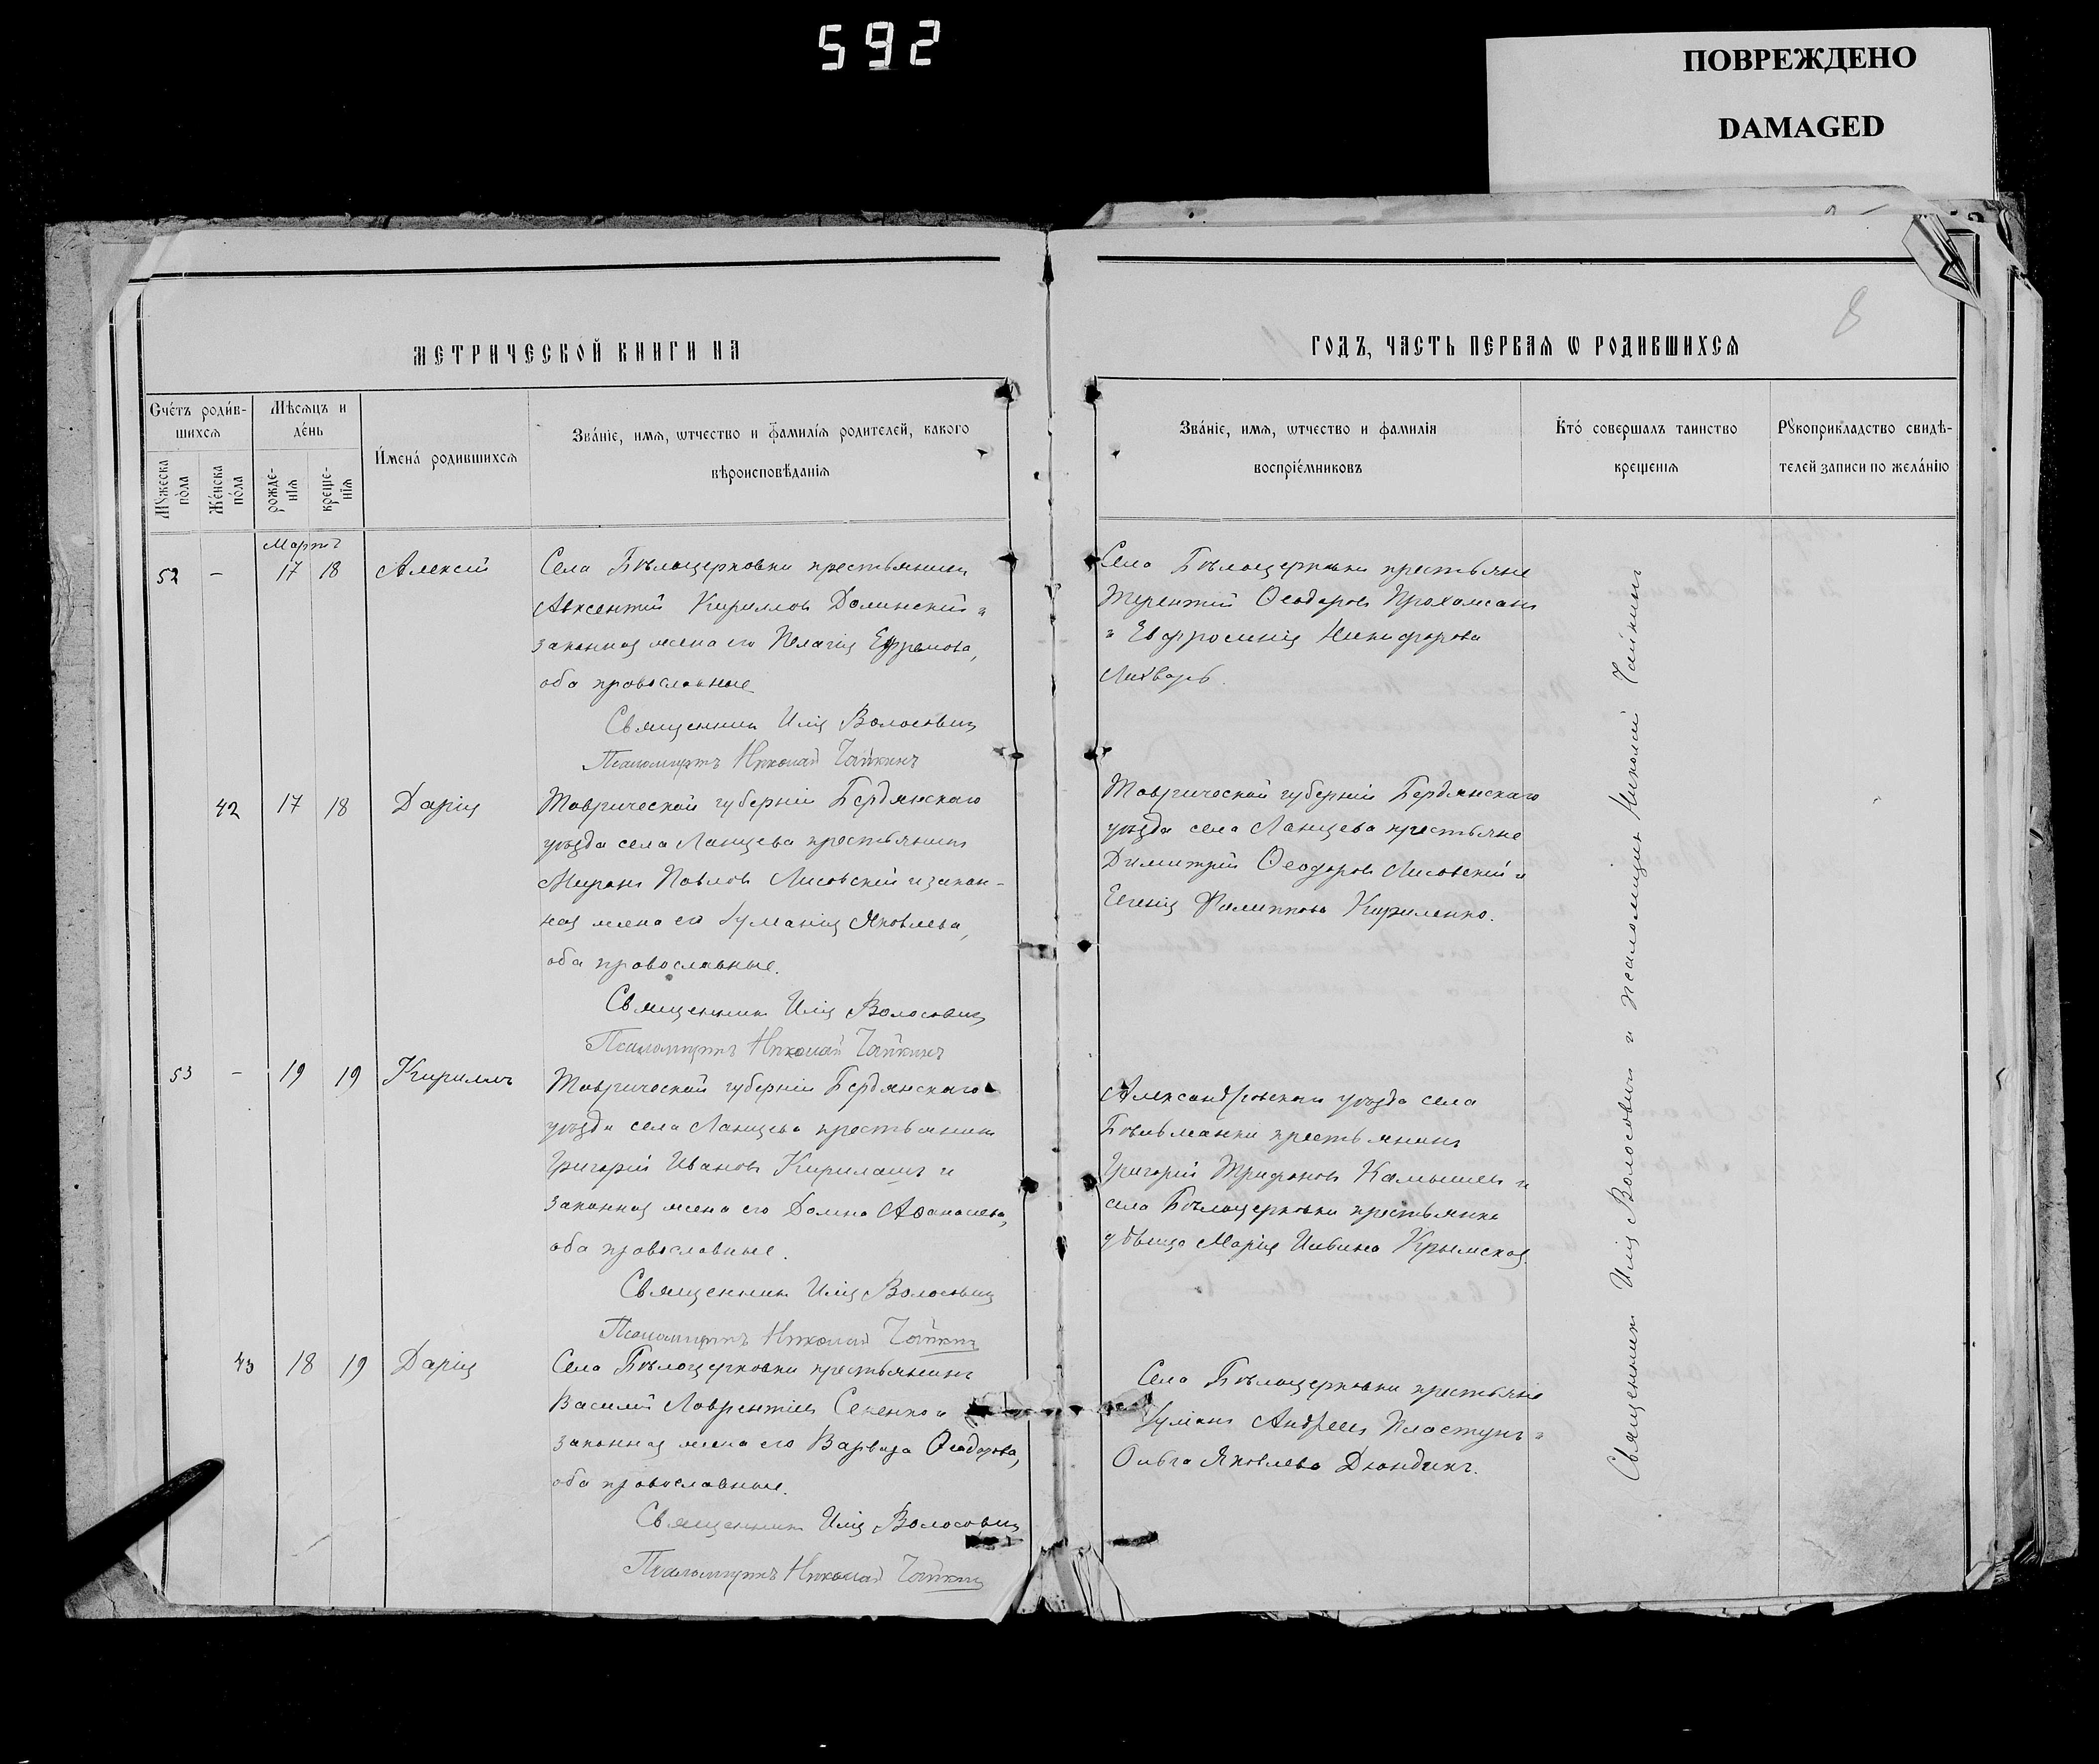 592
ПОВРЕЖДЕНО
DAMAGED
8
МЕТРИЧЕСКОЙ КНИГИ НА
ГОДЪ, ЧАСТЬ ПЕРВАЯ Ѡ РОДИВШИХСЯ
Счётъ роди́в-
шихсѧ
Мꙋжеска
по́ла
Же́нска
по́ла
Мѣсѧцъ и
де́нь
рожде-
нїѧ
креще-
нїѧ
И́мена́ родившихсѧ
Зва́нїе, имѧ, ѿтчество и фамилїѧ родителей, какого
вѣроисповѣданїѧ
Зва́нїе, имѧ, ѿтчество и фамилїѧ
воспрїе́мниковъ
Кто́ совершалъ таинство
крещенїѧ
Рꙋкоприкладство свидѣ-
телей записи по жела́нїю
Мартъ
52 - 17 18 Алексій
Села Бѣлоцерковки крестьянинъ
Авксентій Кириловъ Долинскій и
законная жена его Пелагія Ефремова,
оба православные
Священникъ Илія Волосовичъ
Псаломщикъ Николай Чайкинъ
Села Бѣлоцерковки крестьяне
Терентій Ѳеодоровъ
и Евфросинія Никифорова
Лихварь.
42 17 18 Дарія
Таврической губерніи Бердянскаго
уѣзда села Ланцева крестьянинъ
Миронъ Павловъ Лисовскій и закон-
ная жена его Іуліанія Яковлева,
оба православные.
Священникъ Илія Волосовичъ
Псаломщикъ Николай Чайкинъ
Таврической губерніи Бердянскаго
уѣзда села Ланцева крестьяне
Димитрій Ѳеодоровъ Лисовскій и
Евгенія Филиппова Кириленко.
53 - 19 19 Кириллъ
Таврической губерніи Бердянскаго
уѣзда села Ланцева крестьянинъ
Григорій Ивановъ и
законная жена его Домна Аѳанасіева,
оба православные.
Священникъ Илія Волосовичъ
Псаломщикъ Николай Чайкинъ
Александровскаго уѣзда села
крестьянинъ
Григорій Трифоновъ Камышевъ и
села Бѣлоцерковки крестьянка
дѣвица Марія Ильина Крымская.
43 18 19 Дарія
Села Бѣлоцерковки крестьянинъ
Василій Лаврентіевъ Сененко и
законная жена его Варвара Ѳеодорова,
оба православные.
Священникъ Илія Волосовичъ
Псаломщикъ Николай Чайкинъ
Села Бѣлоцерковки крестьяне
Іуліанъ Андреевъ Пластунъ и
Ольга Яковлева Дюндикъ.
Священникъ Илія Волосовичъ и псаломщикъ Николай Чайкинъ